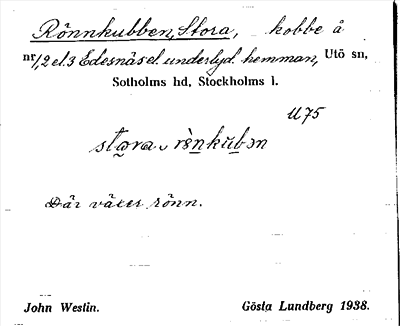 Rönnkubben, Stora, kobbe å
nr 1, 2 el. 3 Edesnäs el. underlyd. hemman, Utö sn,
Sotholms hd, Stockholms l.
U 75
stora rènkŭbən
Där växer rönn.
John Westin. Gösta Lundberg 1938.